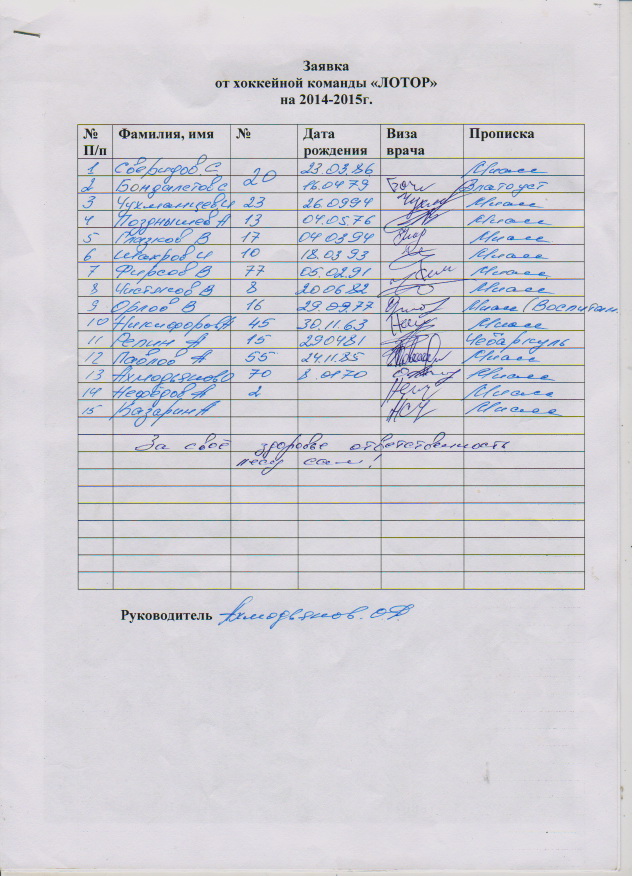 Заявка
от хоккейной команды «ЛОТОР»
на 2014-2015г.
№ П/п Фамилия, имя № Дата рождения Виза врача Прописка
1 Свиридов С 20 23.03.86 Миасс
2 Бондалетов С 16.04 79 Златоуст
3 Чухманцев И 23 26.09 94 Миасс
4 Позднышев А 13 04.05 76 Миасс
5 Глазков В 17 04 03 94 Миасс
6 Шакиров И 10 18.03 93 Миасс
7 Фирсов В 77 05.02.91 Миасс
8 Чистяков В 8 20 06 82 Миасс
9 Орлов В 16 29.09.77 Миасс (Воспитан.
10 Никифоров А 45 30.11.63 Миасс
11 Репин А 15 29 04 81 Чебаркуль
12 Павлов А 55 24.11.85 Миасс
13 Ахмедьянов О 70 8.01 70 Миасс
14 Нефёдов А 2 Миасс
15 Казарин А Миасс
За своё здоровье ответственность
несу сам!
Руководитель Ахмедьянов. О.Ф.